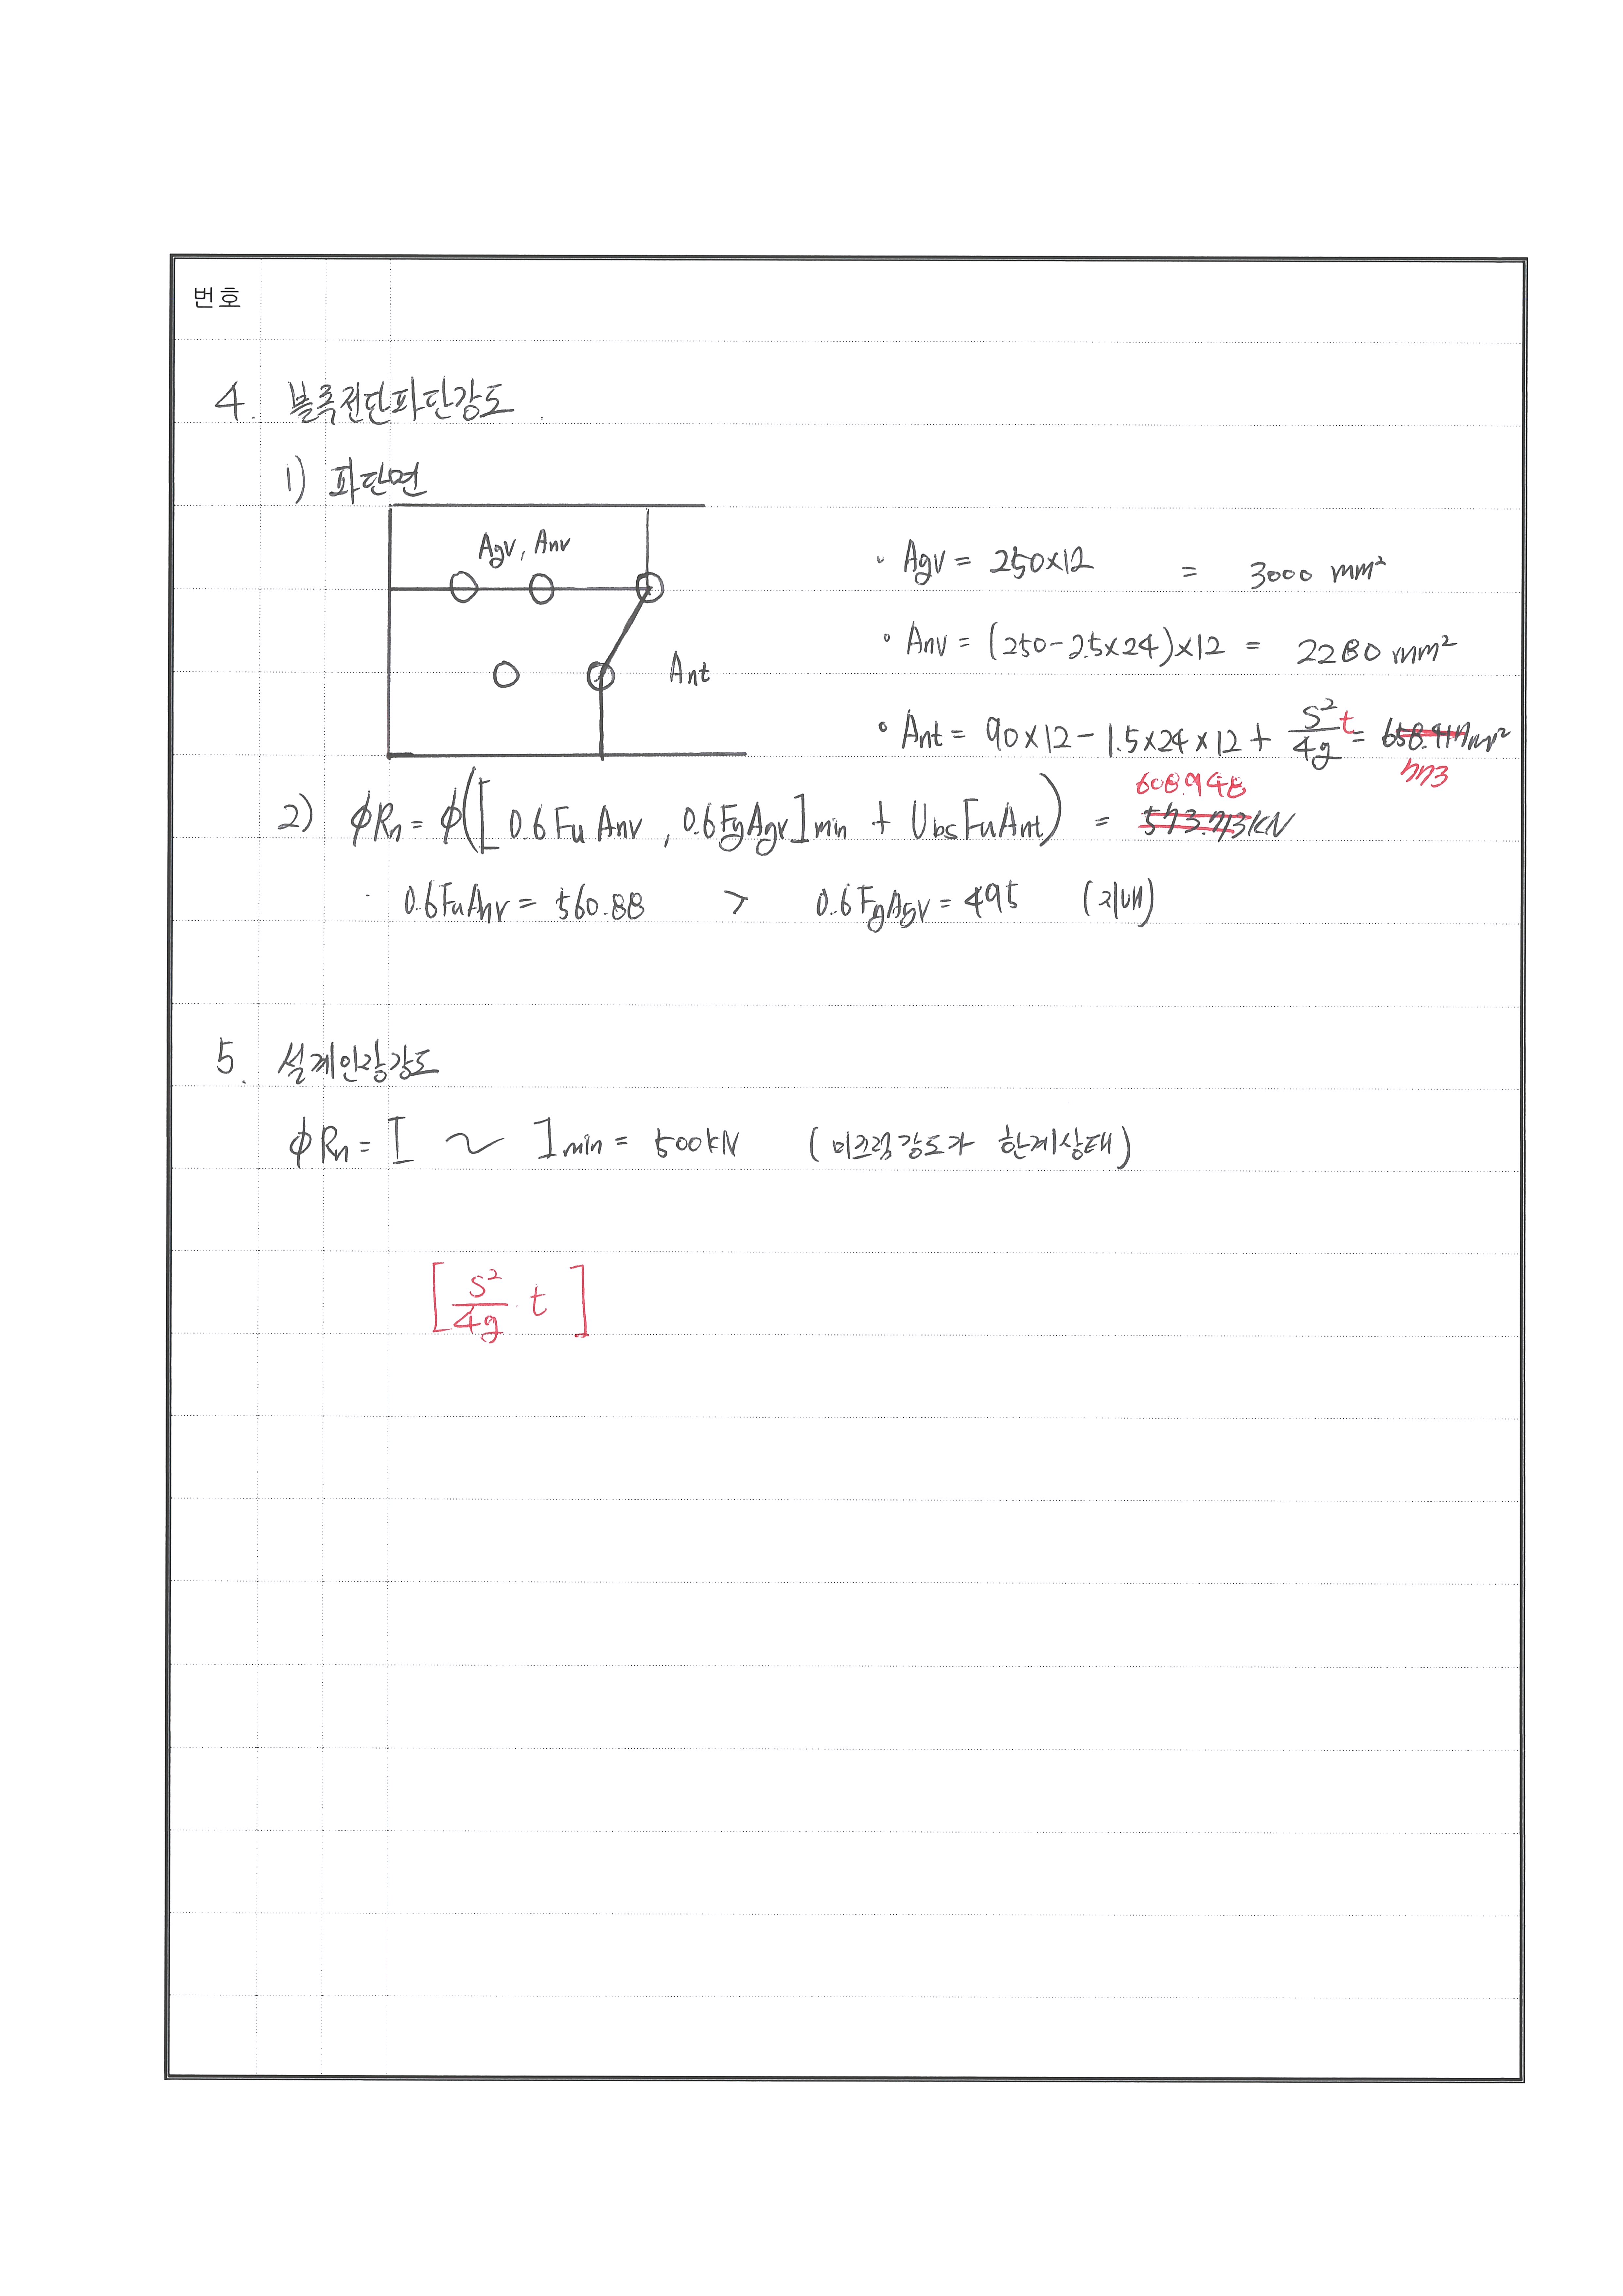 번호
4. 블록전단파단강도
1) 파단면
Agv, Anv
Ant
• Agv = 250×12 = 3000 mm²
• Anv = (250-2.5×24)×12 = 2280 mm²
• Ant = 90×12 - 1.5×24×12 + S²/4g t = mm²
608.948
2) ϕRn = ϕ([0.6 Fu Anv , 0.6 Fy Agv]min + Ubs Fu Ant) = 573.713 kN
0.6 Fu Anv = 560.88 > 0.6 Fy Agv = 495 (지배)
5. 설계인장강도
ϕRn = [ ~ ]min = 500kN (미끄럼강도가 한계상태)
[S²/4g · t]